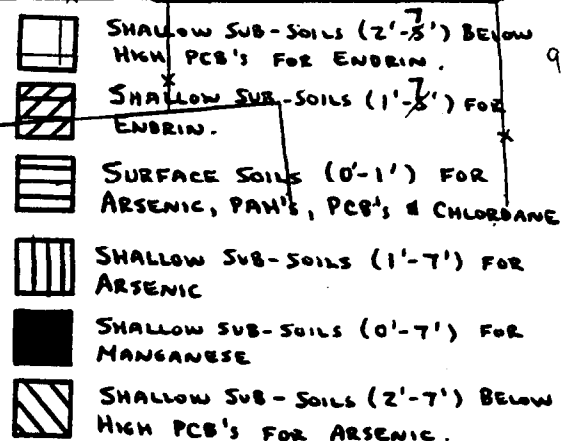 SHALLOW SUB-SOILS (2'-7') BELOW
HIGH PCB'S FOR ENDRIN.
9
SHALLOW SUB-SOILS (1'-7') FOR
ENDRIN.
SURFACE SOILS (0'-1') FOR
ARSENIC, PAH'S, PCB'S & CHLORDANE
SHALLOW SUB-SOILS (1'-7') FOR
ARSENIC
SHALLOW SUB-SOILS (0'-7') FOR
MANGANESE
SHALLOW SUB-SOILS (2'-7') BELOW
HIGH PCB'S FOR ARSENIC.